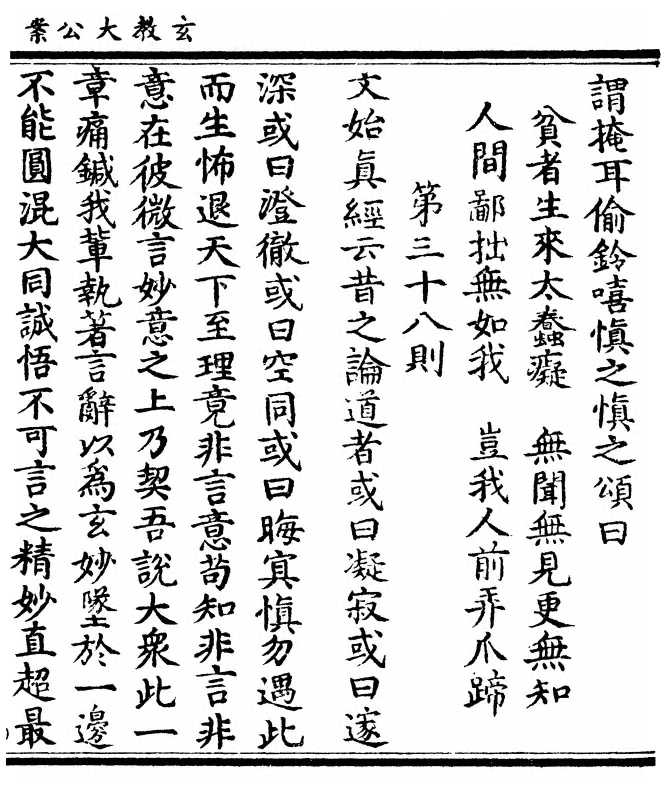 玄教大公案
謂掩耳偷鈴嘻愼之愼之頌曰
貧者生來太蠢癡　無聞無見更無知
人間鄙拙無如我　豈我人前弄爪蹄
第三十八則
文始眞經云昔之論道者或曰凝寂或曰邃
深或曰澄徹或曰空同或曰晦冥愼勿遇此
而生怖退天下至理竟非言意茍知非言非
意在彼微言妙意之上乃契吾說大衆此一
章痛鍼我輩執著言辭以爲玄妙墜於一邊
不能圓混大同誠悟不可言之精妙直超最